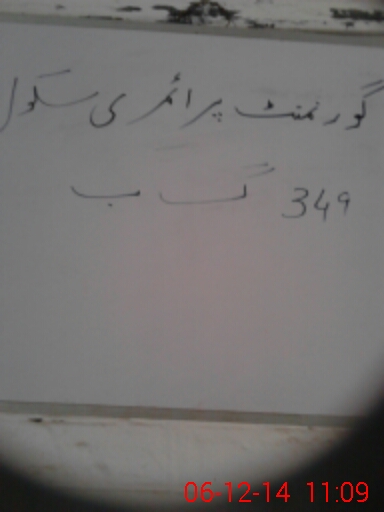 گورنمنٹ پرائمری سکول
349 گ ب
06-12-14 11:09